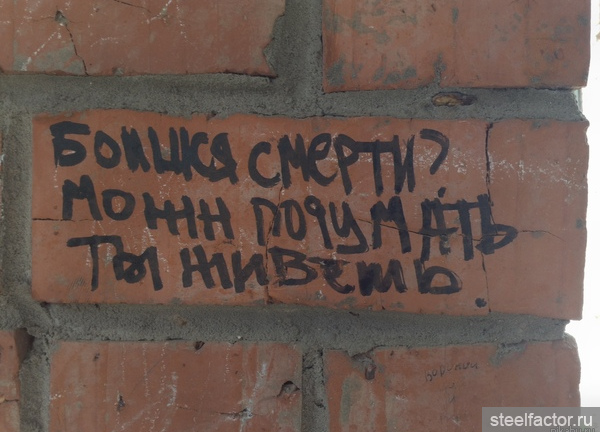 БОИШЬСЯ СМЕРТИ?
МОЖН ПОДУМАТЬ
ТЫ ЖИВЕШЬ.
steelfactor.ru